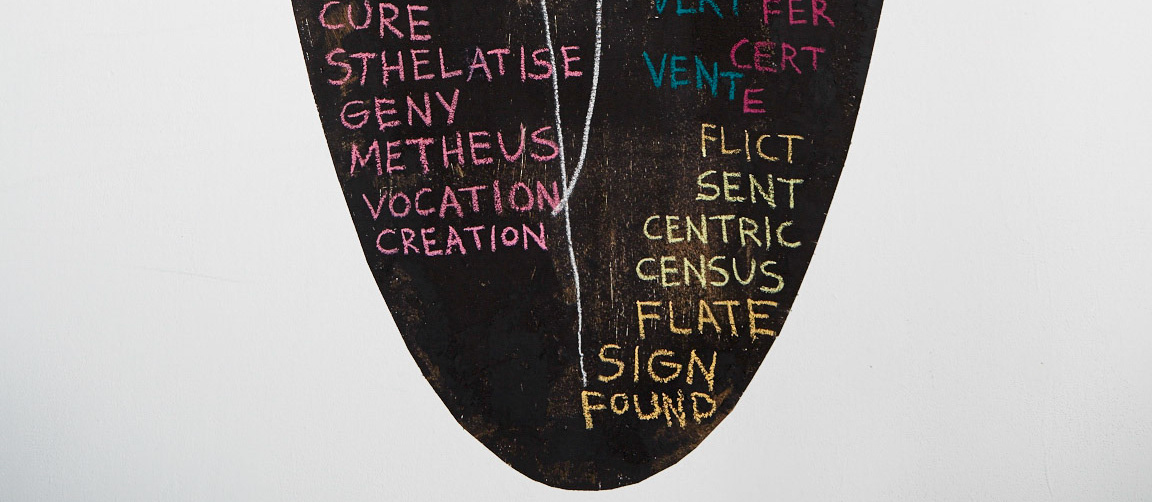 CURE
STHELATISE
GENY
METHEUS
VOCATION
CREATION
VERT FER
CERT
VENT
E
FLICT
SENT
CENTRIC
CENSUS
FLATE
SIGN
FOUND